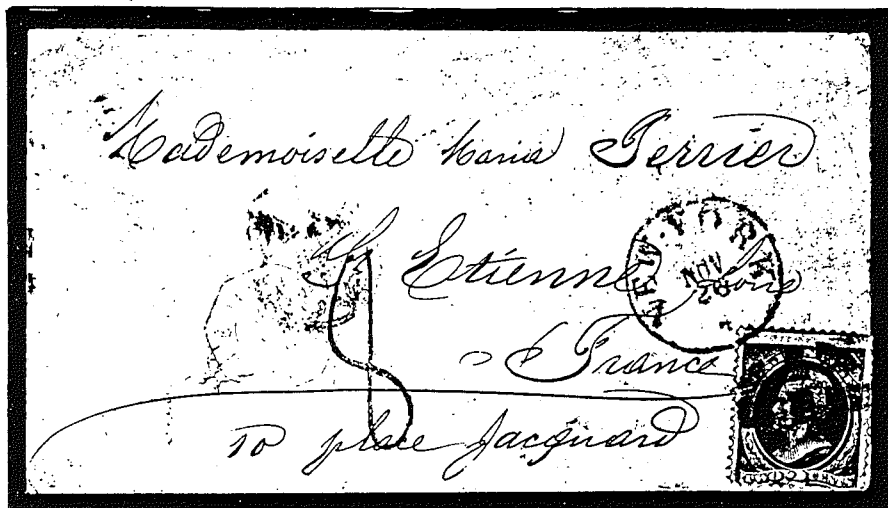 Mademoiselle Maria Perrier
St Etienne Loire
France
10 place Jacquard
NEW-YORK
NOV